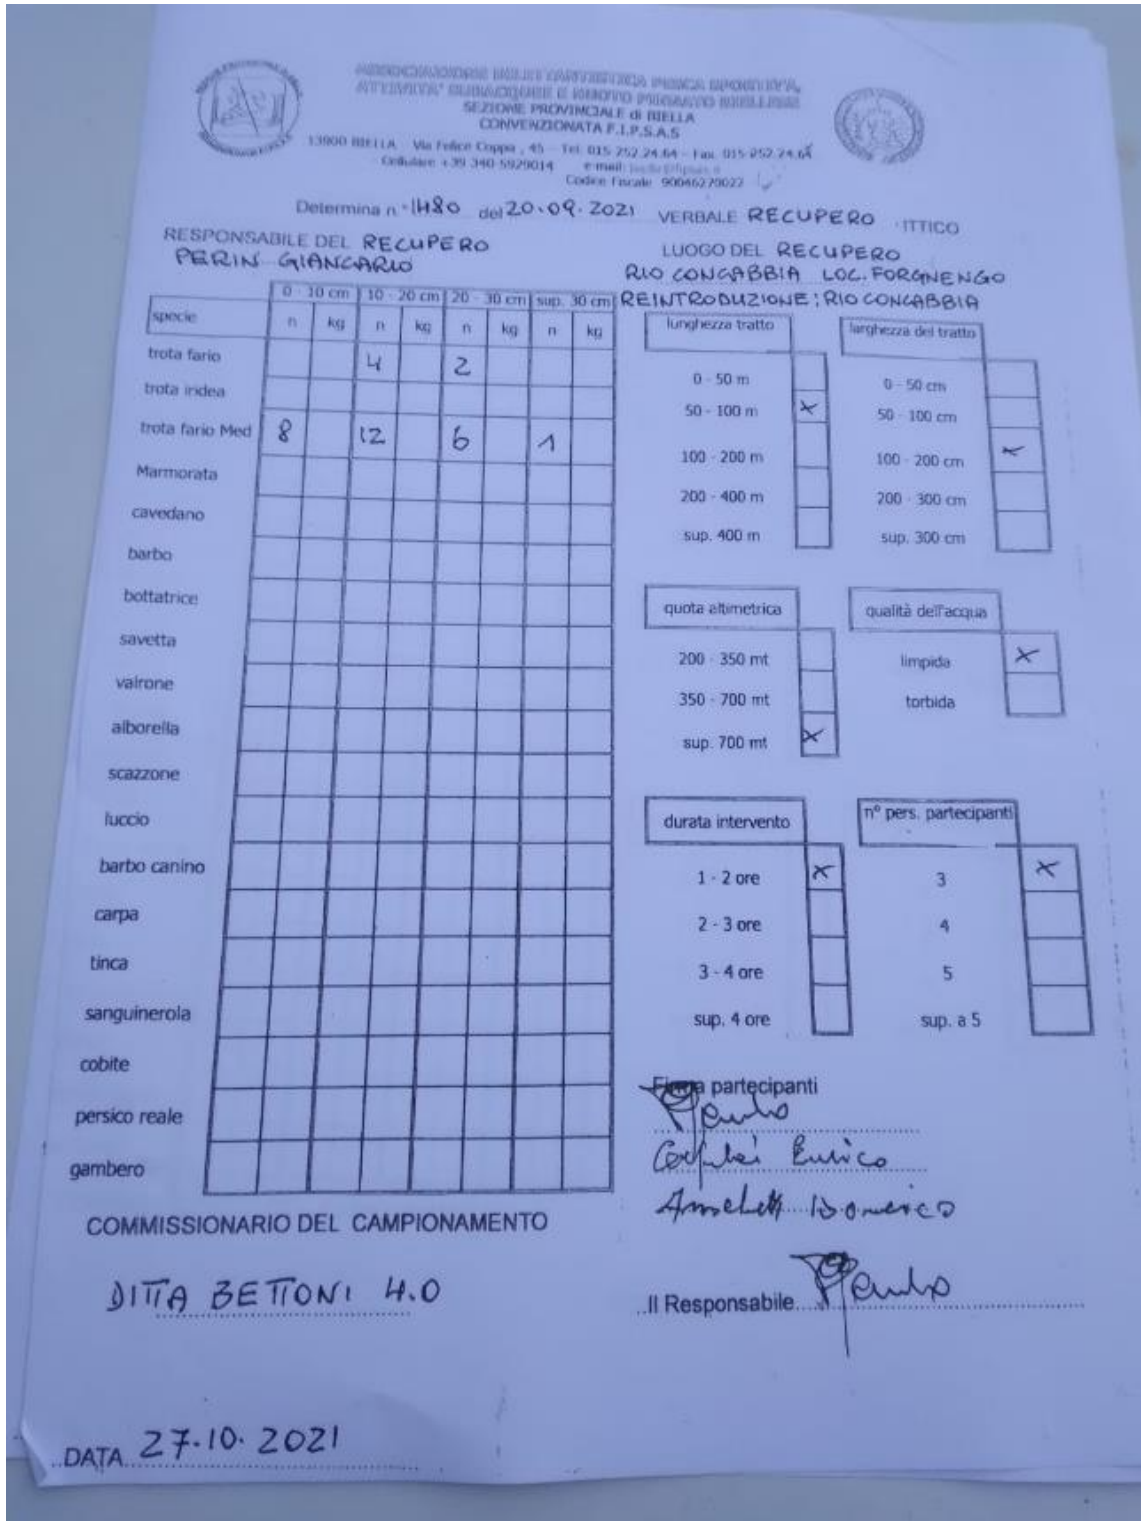 ASSOCIAZIONE DILETTANTISTICA PESCA SPORTIVA,
ATTIVITA' SUBACQUEE E NUOTO PINNATO BIELLESE
SEZIONE PROVINCIALE di BIELLA
CONVENZIONATA F.I.P.S.A.S
13900 BIELLA Via Felice Coppa , 45 - Tel. 015-252.24.64 - Fax. 015-252.24.64
Cellulare +39-340-5929014 e-mail:
Codice Fiscale 90046270022
Determina n. 1480 del 20.09.2021 VERBALE RECUPERO ITTICO
RESPONSABILE DEL RECUPERO
PERIN GIANCARLO
LUOGO DEL RECUPERO
RIO CONCABBIA LOC. FORGNENGO
REINTRODUZIONE: RIO CONCABBIA
0 - 10 cm 10 - 20 cm 20 - 30 cm sup. 30 cm
specie n kg n kg n kg n kg
trota fario 4 2
trota iridea
trota fario Med 8 12 6 1
Marmorata
cavedano
barbo
bottatrice
savetta
vairone
alborella
scazzone
luccio
barbo canino
carpa
tinca
sanguinerola
cobite
persico reale
gambero
lunghezza tratto
0 - 50 m
50 - 100 m x
100 - 200 m
200 - 400 m
sup. 400 m
larghezza del tratto
0 - 50 cm
50 - 100 cm
100 - 200 cm x
200 - 300 cm
sup. 300 cm
quota altimetrica
200 - 350 mt
350 - 700 mt
sup. 700 mt x
qualità dell'acqua
limpida x
torbida
durata intervento
1 - 2 ore x
2 - 3 ore
3 - 4 ore
sup. 4 ore
n° pers. partecipanti
3 x
4
5
sup. a 5
Firma partecipanti
Enrico
Domenico
COMMISSIONARIO DEL CAMPIONAMENTO
DITTA BETTONI 4.0
Il Responsabile
DATA 27.10.2021